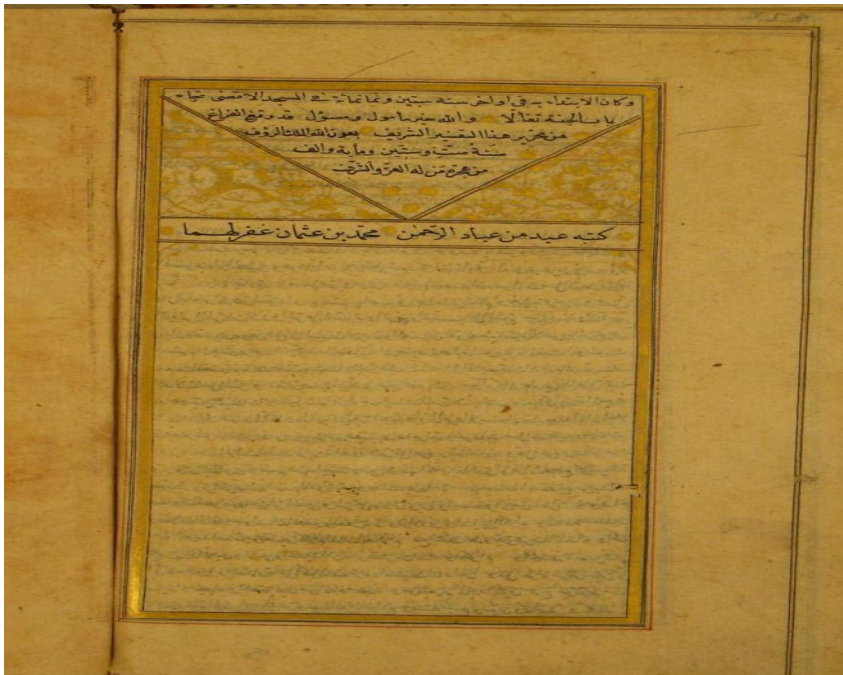 وكان الابتداء به في اواخر سنة ستين وثمانمائة في المسجد الاقصى تجاه
باب الجنة تفالا والله خير مامول ومسؤل قد وقع الفراغ
من تحرير هذا التفسير الشريف بعون الله الملك الرؤف
سنة ست وستين ومايه والف
من هجرة من له العز والشرف
كتبه عبد من عباد الرحمن محمد بن عثمان غفر لهما